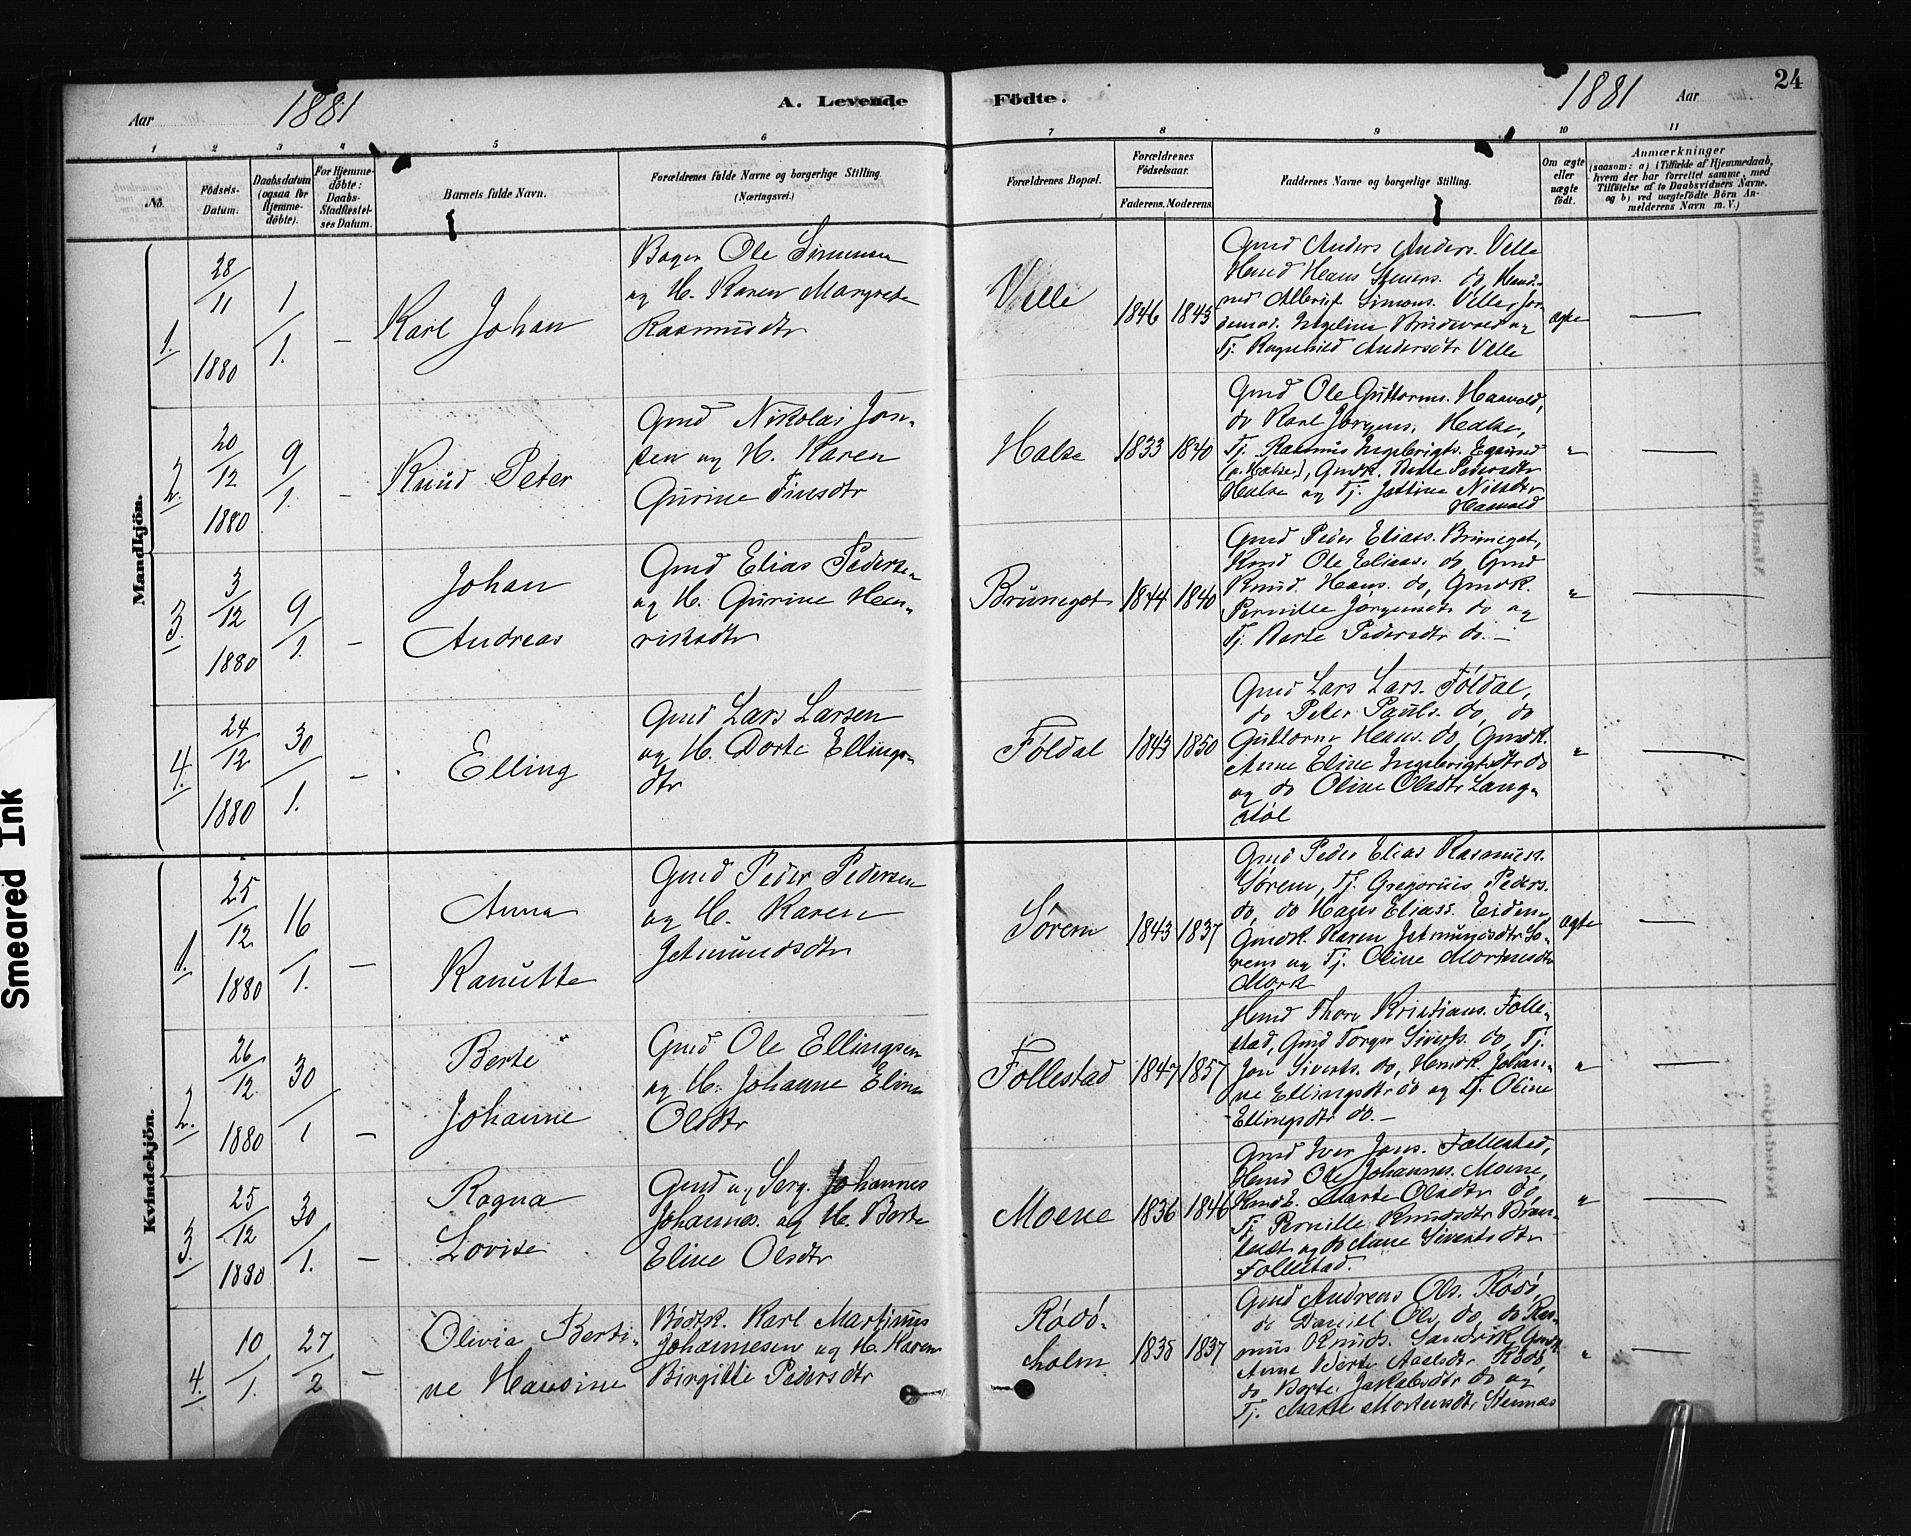 24
Aar 1881 A. Levende Födte. 1881 Aar
1 2 3 4 5 6 7 8 9 10 11
No.
Födsels-Datum.
Daabsdatum (ogsaa for Hjemmedöbte).
For Hjemmedöbte: Daabs-Stadfæstelses Datum.
Barnets fulde Navn.
Forældrenes fulde Navne og borgerlige Stilling.
(Næringsvei.)
Forældrenes Bopæl.
Forældrenes Födselsaar.
Faderens. Moderens.
Faddernes Navne og borgerlige Stilling.
Om ægte eller uægte født.
Anmærkninger
(saasom: a) i Tilfælde af Hjemmedaab,
hvem der har forrettet samme, med
Tilföielse af to Daabsvidners Navne,
og b) ved uægtefödte Börn An-
melderens Navn m. V.)
Mandkjön.
1. 28/11 1880 1/1. –
Karl Johan
Ole
og H. Karen Margrete
Rasmusdtr
Velle
1846 1845
Gmd Anders Anders. Velle
Hans do,
Simons. Velle,
Tj. Ragnhild Andersdtr Velle
ægte —
2. 20/12 1880 9/1. –
Knud Peter
Gmd Nikolai Jon-
sen og H. Karen
Gurine Finsdtr
Halse
1833 1840
Gmd Ole Guttorms. Haavold,
do Karl Jørgens. Halse,
Tj. Rasmus Ingebrigts.
(p. Halse), Gmdk. Berte Pedersdtr
Halse og Tj. Jettine Nilsdtr
Haavold
" —
3. 3/12 1880 9/1. –
Johan
Andreas
Gmd Elias Pedersen
og H. Gurine Hen-
riksdtr
Bruneget
1844 1840
Gmd Peder Eliass. Bruneget,
Ole Eliass. do, Gmd
Knud Hans. do, Gmdk.
Pernille Jørgensdtr do og
Tj. Berte Pedersdtr do. –
" —
4. 24/12 1880 30/1. –
Elling
Gmd Lars Larsen
og H. Dorte Ellings-
dtr
Føldal
1843 1850
Gmd Lars Lars. Føldal,
do Peter Pauls. do, do
Guttorm Hans. do, Gmdk.
Anne Eline Ingebrigtsdtr do
og do Oline Olsdtr Lang-
støl
" —
Kvindekjön.
1. 25/12 1880 16/1. –
Anna
Kanutte
Gmd Peder Pedersen
og H. Karen
Jetmundsdtr
Sørem
1843 1837
Gmd Peder Elias Rasmuss.
Sørem, Tj. Gregorius Peders.
do, do Eliass.
Gmdk. Karen Jetmundsdtr Sø-
rem og Tj. Oline
Mork
ægte —
2. 26/12 1880 30/1 –
Berte
Johanne
Gmd Ole Ellingsen
og H. Johanne Eline
Olsdtr
Follestad
1847 1857
Thore Kristians. Folle-
stad, Gmd Torger Siverts. do, Tj.
Jon Siverts. do, Johan-
ne Ellingsdtr do og Tj. Oline
Ellingsdtr do. –
" —
3. 25/12 1880 30/1. –
Ragna
Lovise
Gmd og Serg. Johannes
Johannes. og H. Berte
Eline Olsdtr
Moene
1836 1846
Gmd Iver Jons. Follestad,
Ole Johannes. Moene,
Marte Olsdtr do,
Tj. Pernille Knudsdtr
og do Anne Sivertsdtr
Follestad.
" —
4. 10/1. 27/2 –
Olivia Berti-
ne Hansine
Bødk. Karl Martinus
Johannesen og H. Karen
Birgitte Pedersdtr
Rødø-
holm
1835 1837
Gmd Andreas Ols. Rødø,
do Daniel Ols. do, do Ras-
mus Knuds. Sandvik, Gmdk.
Anne Berte Rødø,
do Berte Jakobsdtr do og
Tj. Marte
" —
Smeared Ink